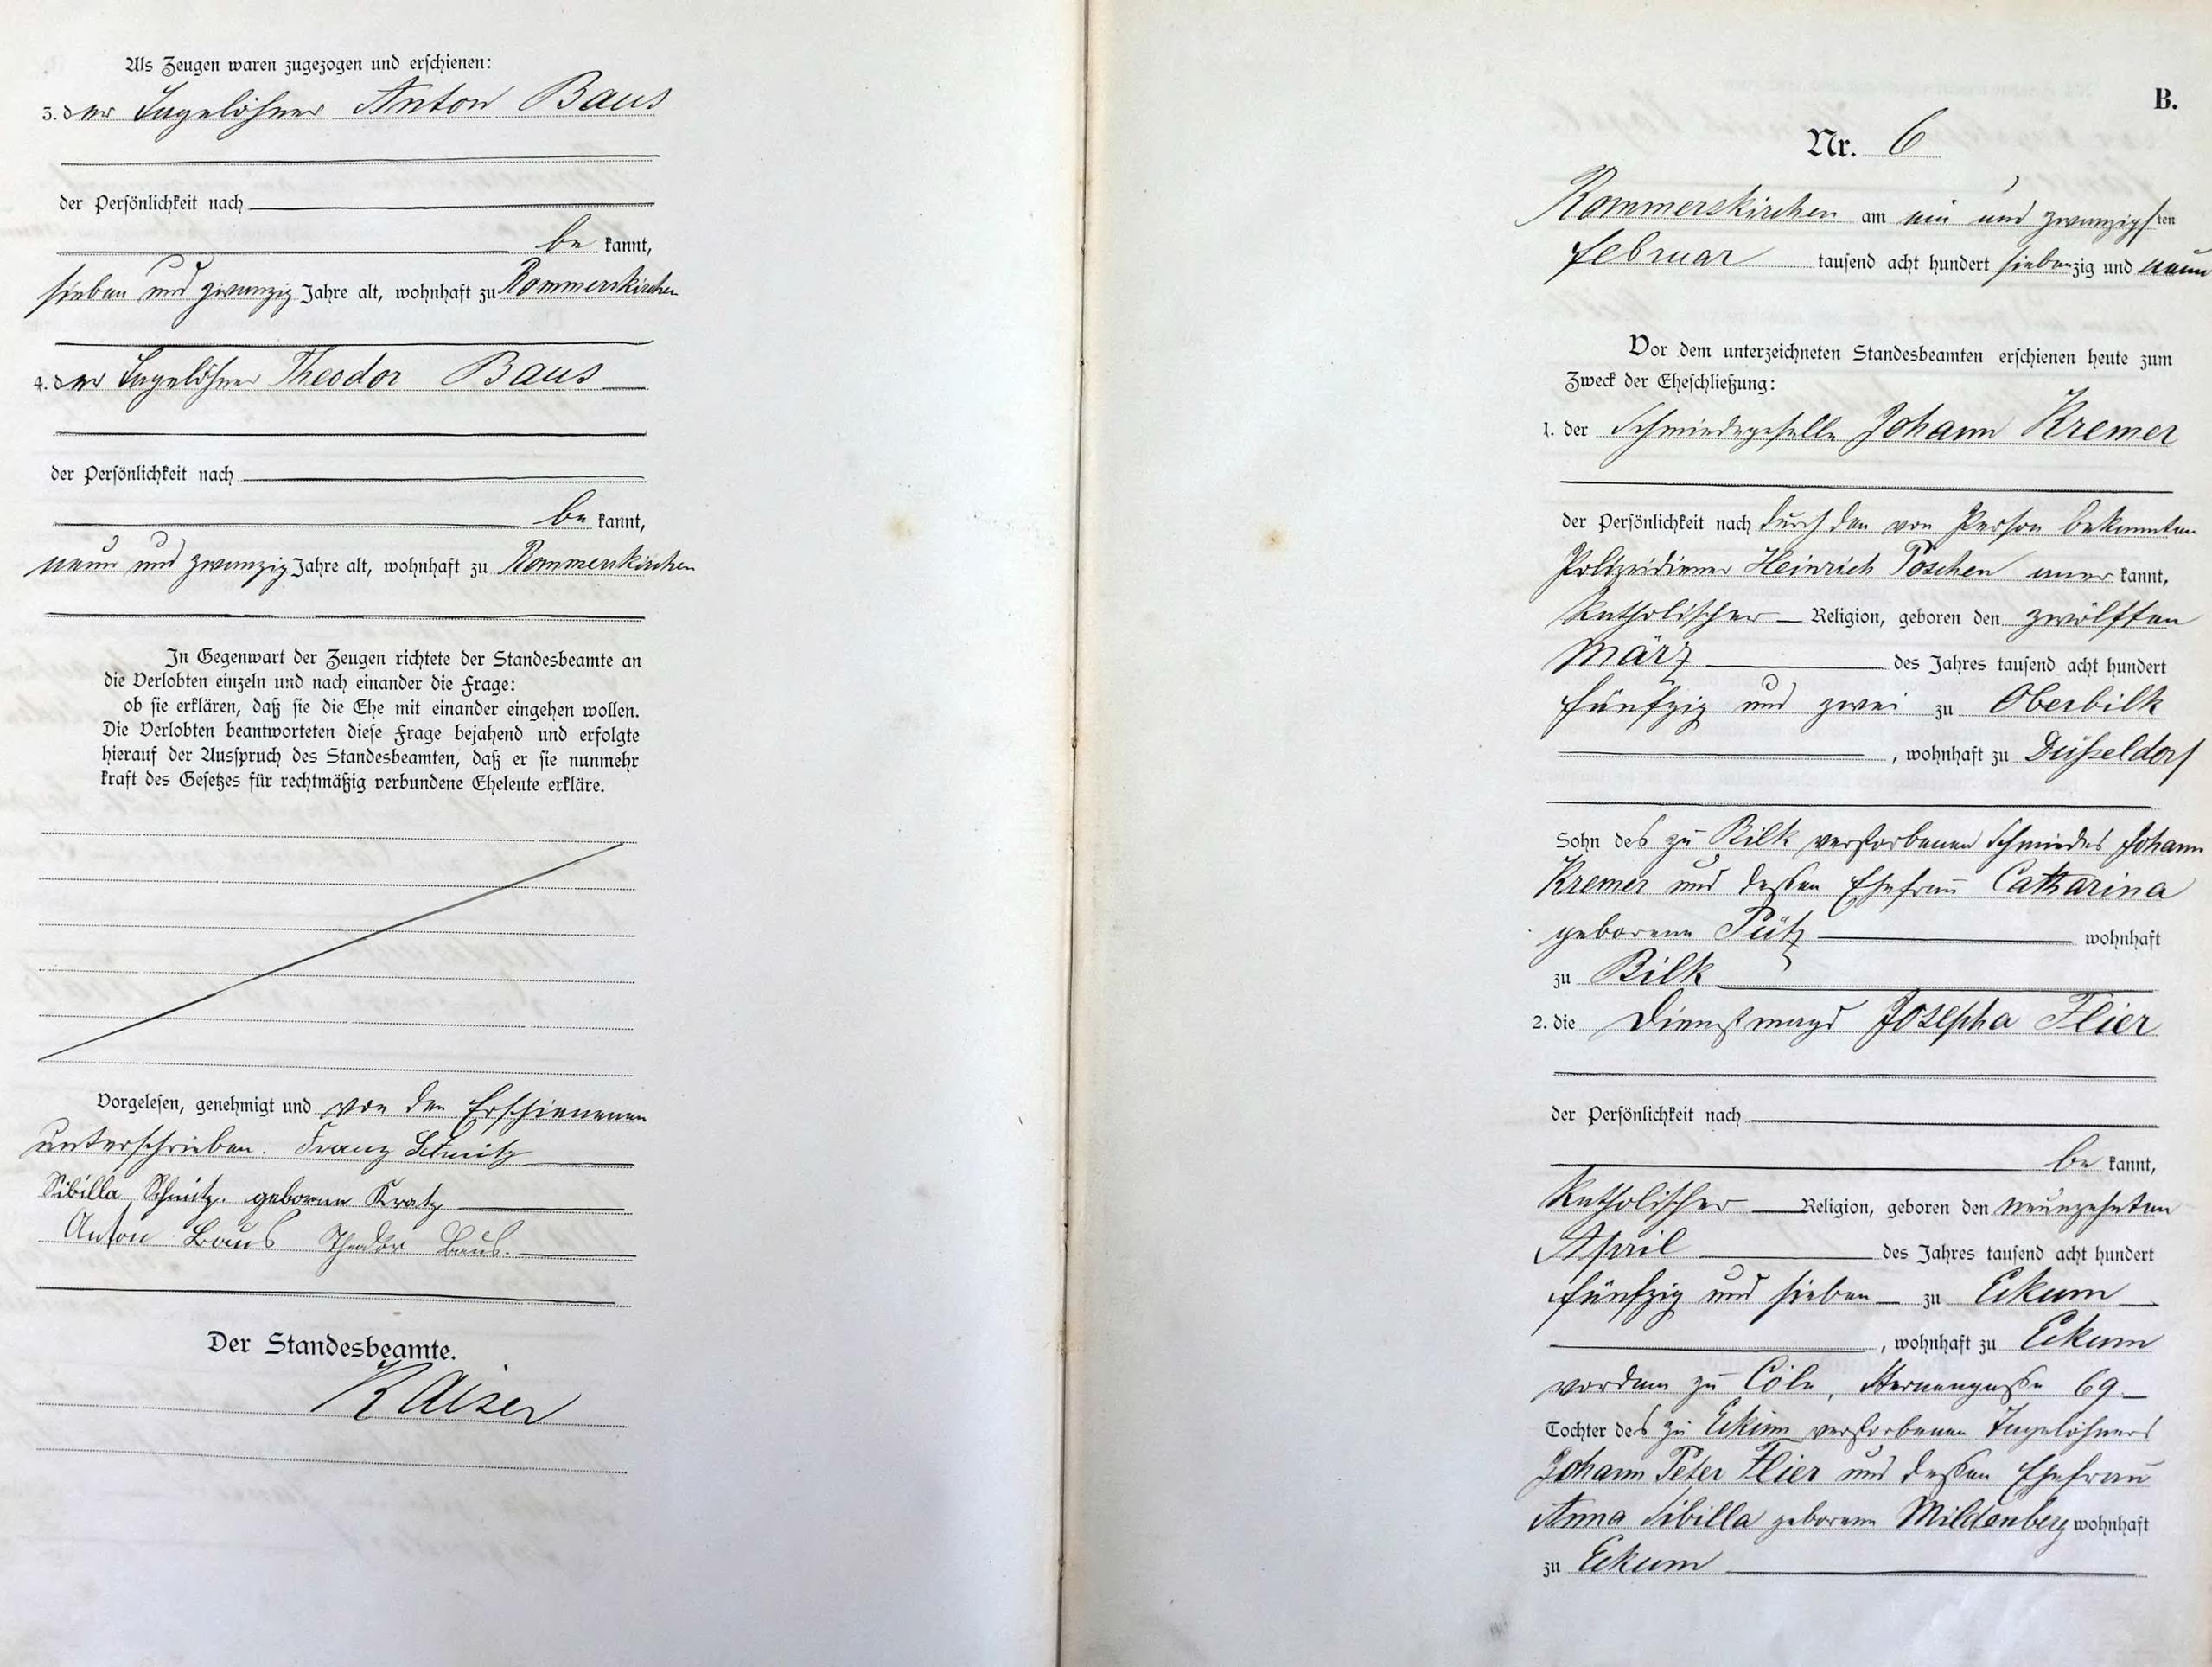 Als Zeugen waren zugezogen und erschienen:
3. der Tagelöhner Anton Baus
der Persönlichkeit nach
be kannt,
sieben und zwanzig Jahre alt, wohnhaft zu Rommerskirchen
4. der Tagelöhner Theodor Baus
der Persönlichkeit nach
be kannt,
neun und zwanzig Jahre alt, wohnhaft zu Rommerskirchen
In Gegenwart der Zeugen richtete der Standesbeamte an
die Verlobten einzeln und nach einander die Frage:
ob sie erklären, daß sie die Ehe mit einander eingehen wollen.
Die Verlobten beantworteten diese Frage bejahend und erfolgte
hierauf der Ausspruch des Standesbeamten, daß er sie nunmehr
kraft des Gesetzes für rechtmäßig verbundene Eheleute erkläre.
Vorgelesen, genehmigt und von den Erschienenen
unterschrieben. Franz Schmitz
Sibilla Schmitz geborene Kratz
Anton Baus Theodor Baus.
Der Standesbeamte.
Kaiser
B.
Nr. 6
Rommerskirchen am ein und zwanzigsten
Februar tausend acht hundert siebenzig und neun
Vor dem unterzeichneten Standesbeamten erschienen heute zum
Zweck der Eheschließung:
1. der Schmiedegeselle Johann Kremer
der Persönlichkeit nach durch den von Person bekannten
Polizeidiener Heinrich Poschen aner kannt,
katholischer Religion, geboren den zwölften
März des Jahres tausend acht hundert
fünfzig und zwei zu Oberbilk
, wohnhaft zu Düsseldorf
Sohn des zu Bilk verstorbenen Schmiedes Johann
Kremer und dessen Ehefrau Catharina
geborene Pütz wohnhaft
zu Bilk
2. die Dienstmagd Josepha Flier
der Persönlichkeit nach
be kannt,
katholischer Religion, geboren den neunzehnten
April des Jahres tausend acht hundert
fünfzig und sieben zu Eckum
, wohnhaft zu Eckum
vordem zu Cöln, Sternengasse 69
Tochter des zu Eckum verstorbenen Tagelöhners
Johann Peter Flier und dessen Ehefrau
Anna Sibilla geborene Mildenberg wohnhaft
zu Eckum